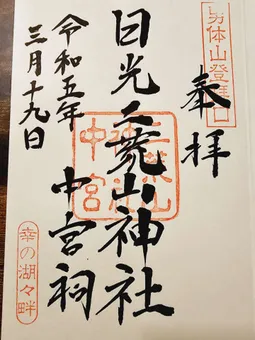 男体山登拝口
奉拝
日光二荒山神社
中宮祠
令和五年
三月十九日
幸の湖々畔